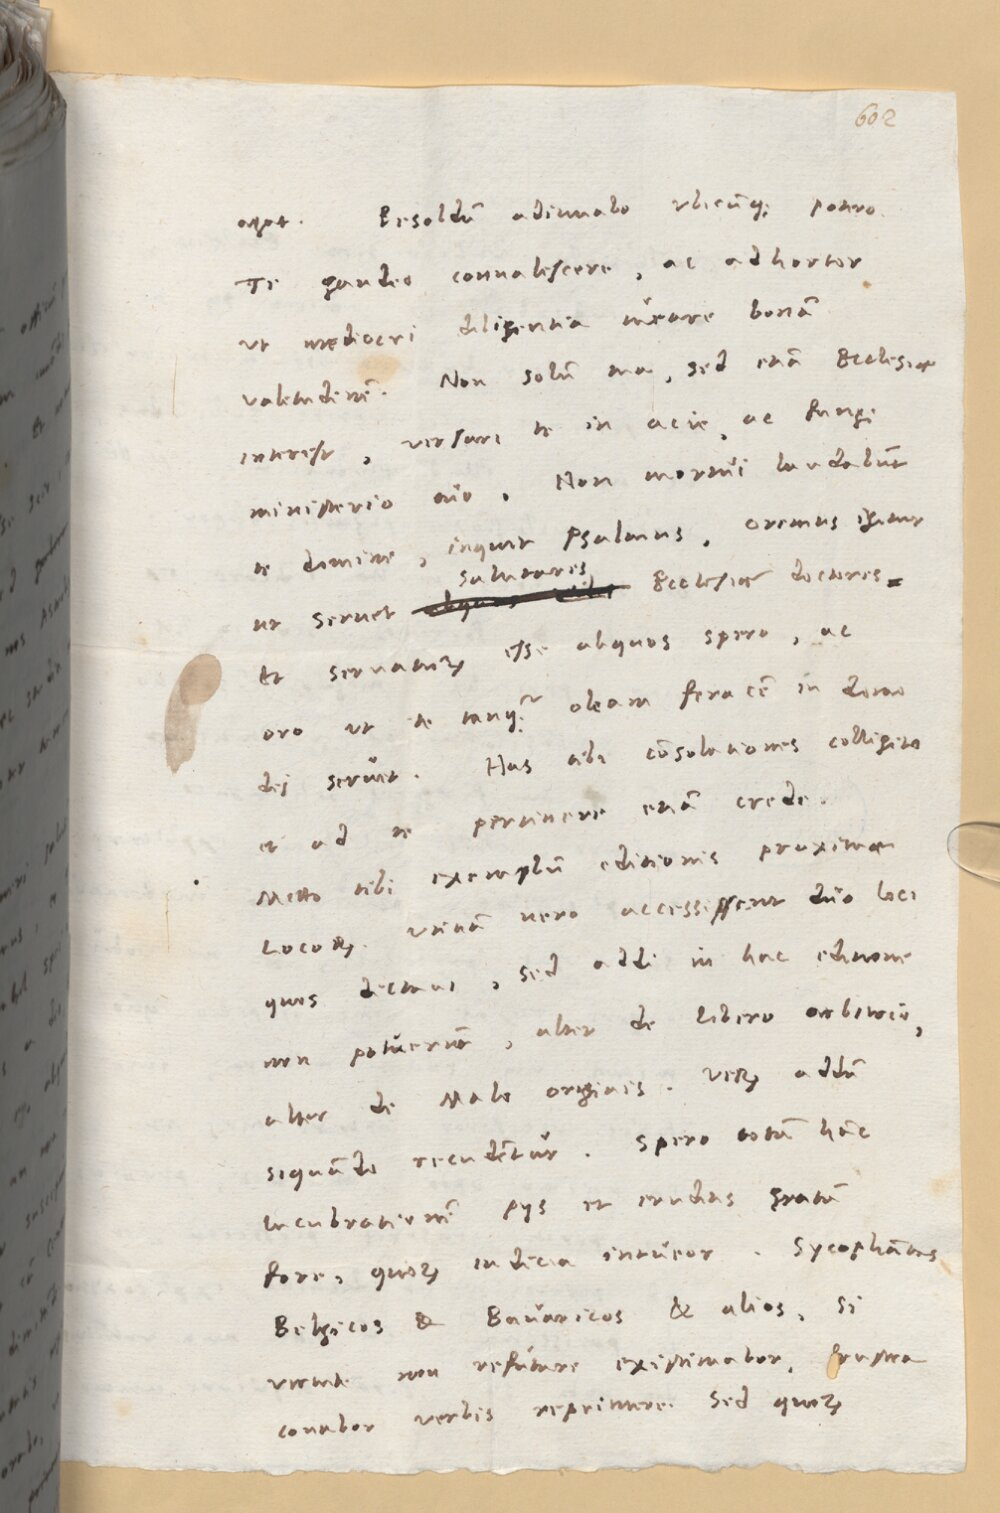 602
Besoldū adiuuabo vbicūq; potero.
Te gaudeo conualescere, ac adhortor
ut mediocri diligentia tueare bonā
valetudinē. Non solū mea, sed etiā Ecclesiae
interest, versari te in acie, ac fungi
ministerio tuo. Non mortui laudabūt
te domine, inquit psalmus, oremus igitur
salutares
ut seruet Ecclesiae doctores=
Et seruaturū esse aliquos spero, ac
oro ut te tanq̄ oleam feracē in domo
dei seruet. Has tibi cōsolationes colligito
et ad te pertinere etiā crede.
Mitto tibi exemplū editionis proximae
Locorū. vtinā vero accessissent duo loci
quos dictaui, sed addi in hac editione
non potuerūt, alter de Libero arbitrio,
alter de Malo originis. Verū addā
siquādo recudētur. Spero totā hāc
lucubrationē pijs et eruditis gratā
fore, quorū iudicia intueor. Sycophātas
Belgicos & Bauaricos & alios, si
virtute non refutare existimabor, frustra
conabor verbis reprimere. Sed quorū